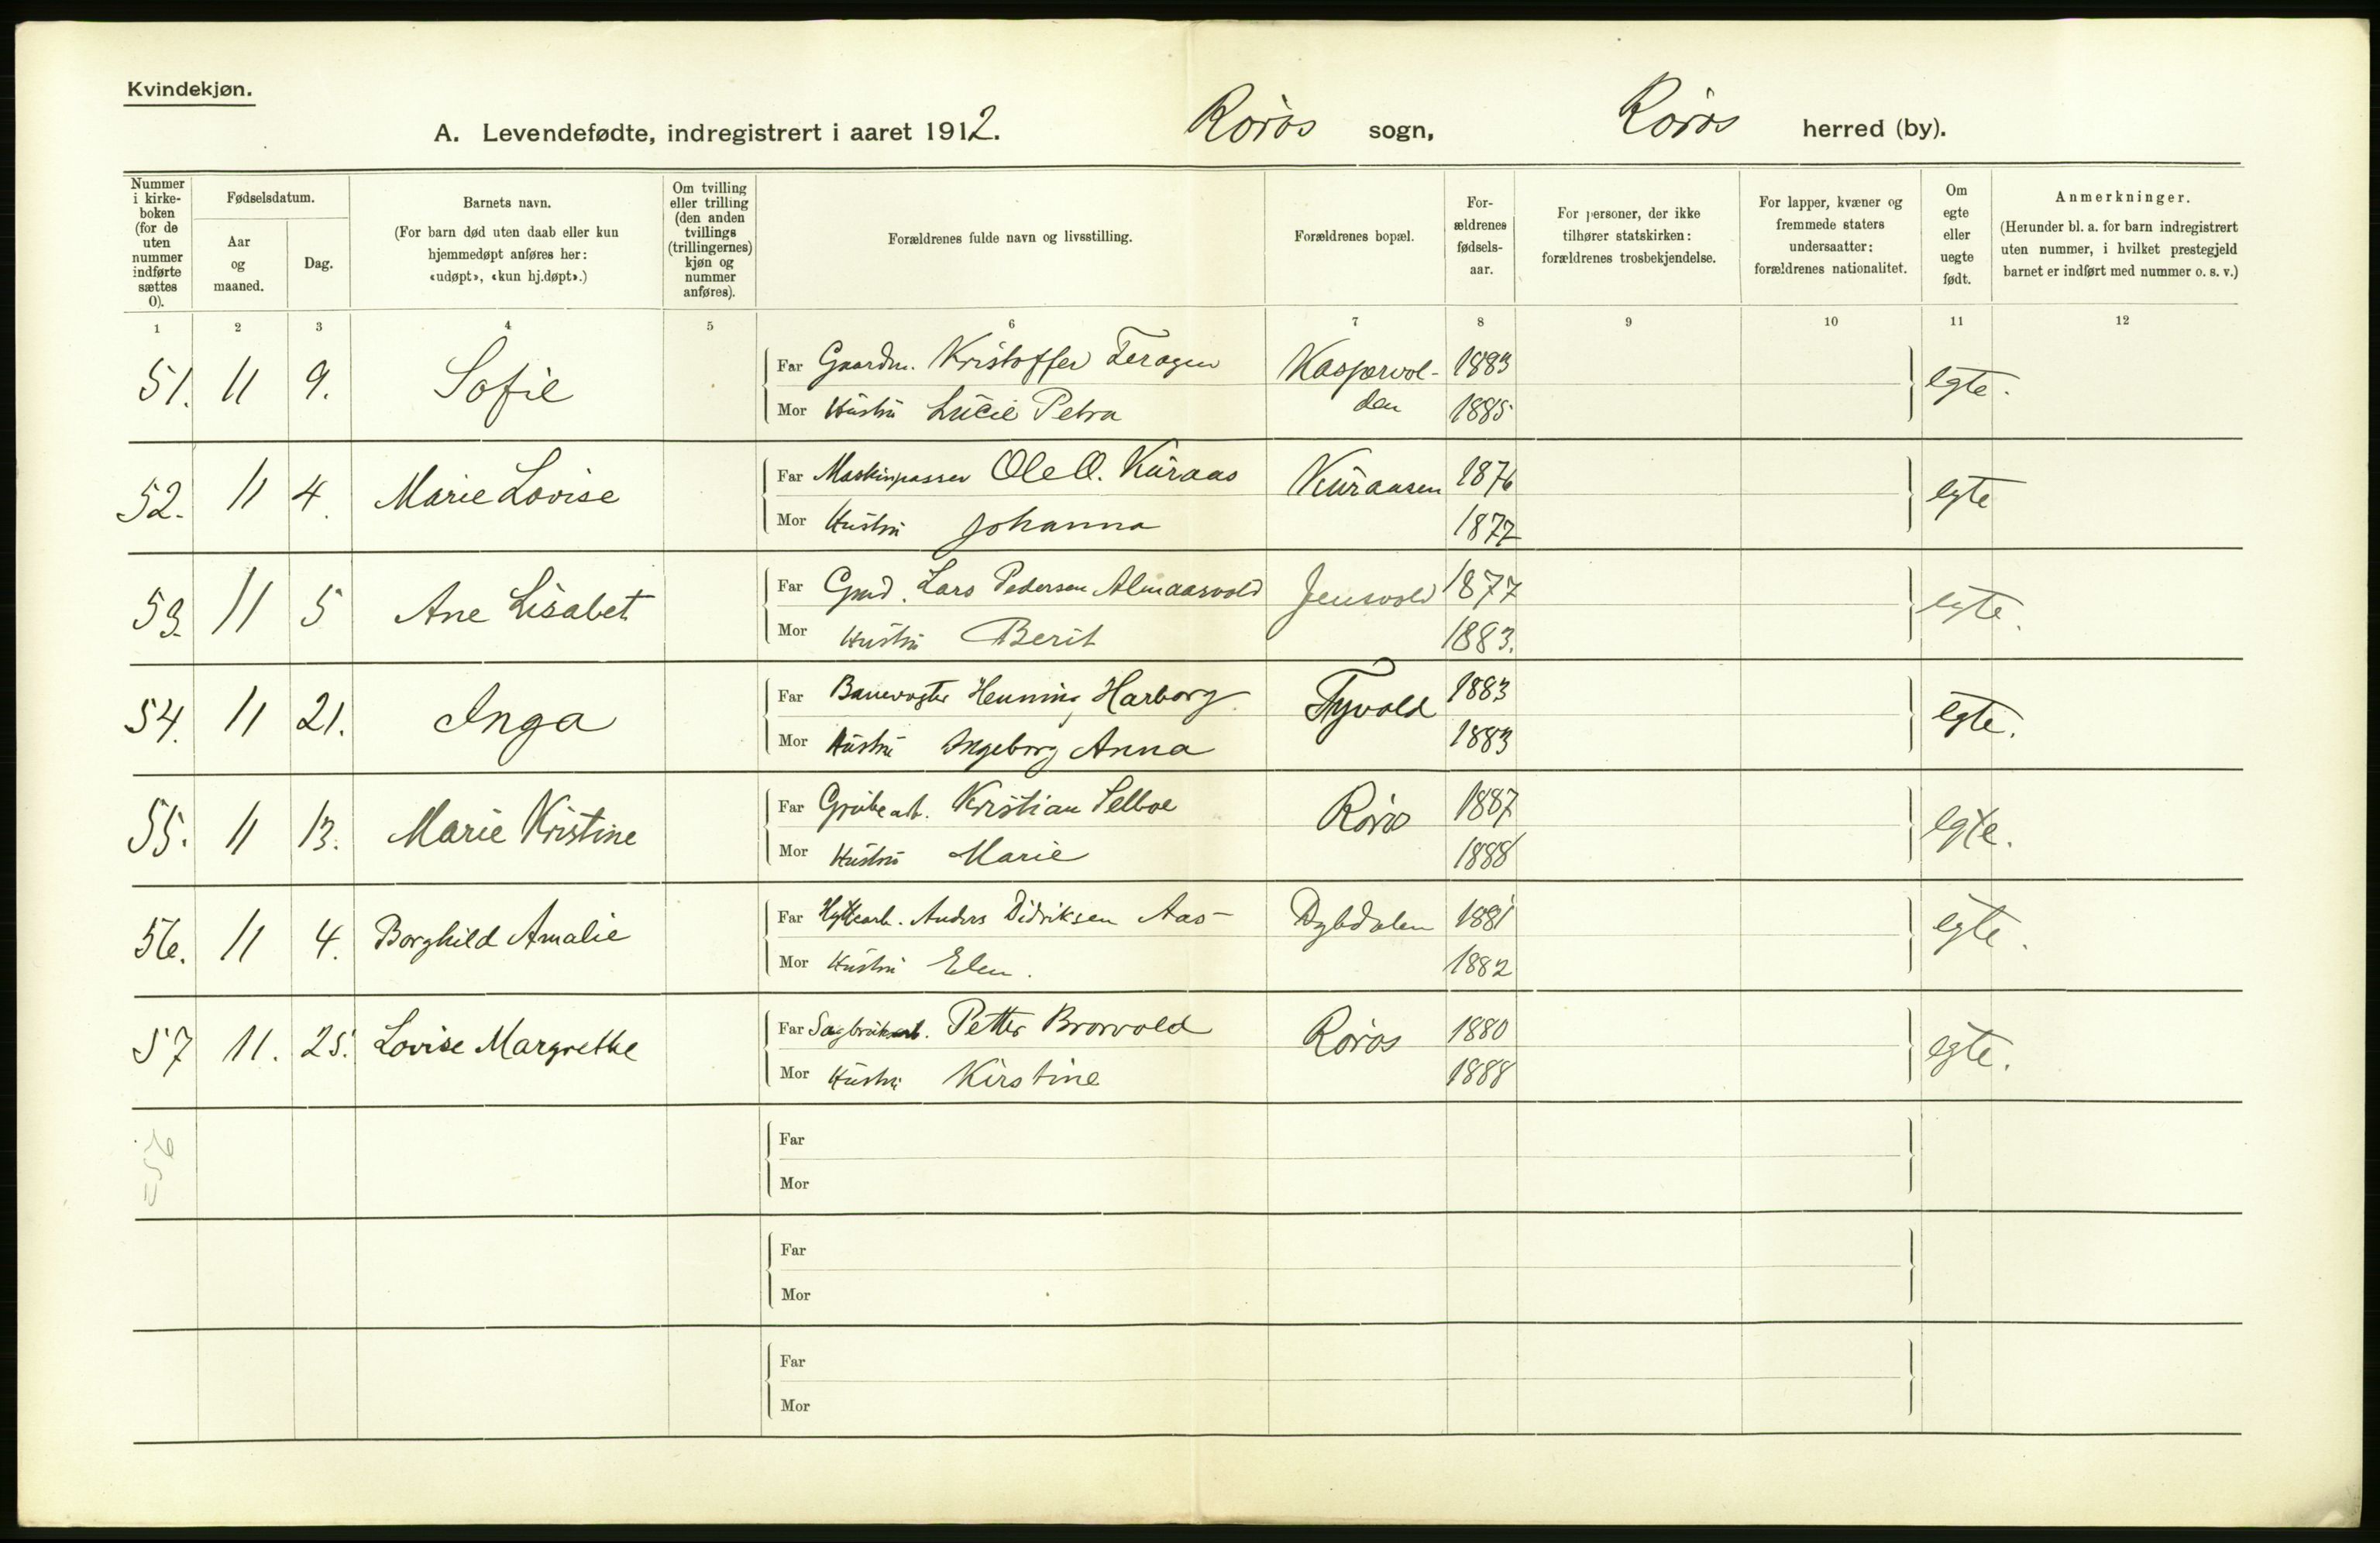 Kvindekjøn.
A. Levendefødte, indregistrert i aaret 1912. Røros sogn, Røros herred (by).
Nummer i kirke-boken (for de uten nummer indførte sættes 0).
Fødselsdatum.
Aar og maaned.
Dag.
Barnets navn.
(For barn død uten daab eller kun hjemmedøpt anføres her: «udøpt», «kun hj.døpt».)
Om tvilling eller trilling (den anden tvillings (trillingernes) kjøn og nummer anføres).
Forældrenes fulde navn og livsstilling.
Forældrenes bopæl.
For-ældrenes fødsels-aar.
For personer, der ikke tilhører statskirken: forældrenes trosbekjendelse.
For lapper, kvæner og fremmede staters undersaatter: forældrenes nationalitet.
Om egte eller uegte født.
Anmerkninger.
(Herunder bl. a. for barn indregistrert uten nummer, i hvilket prestegjeld barnet er indført med nummer o. s. v.)
1 2 3 4 5 6 7 8 9 10 11 12
51. 11 9. Sofie Far Gaardm. Kristoffer Feragen Kasparvol- 1883 egte.
Mor Hustru Lucie Petra den 1885
52. 11 4. Marie Lovise Far Maskinpasser Ole O. Kuraas Kuraasen 1876 egte
Mor Hustru Johanna 1877
53. 11 5 Ane Lisabet Far Gmd. Lars Pedersen Almaasvold Jensvold 1877 egte.
Mor Hustru Berit 1883.
54. 11 21. Inga Far Banevogter Henning Harborg. Tyvold 1883 egte.
Mor Hustru Ingeborg Anna 1883
55. 11 13. Marie Kristine Far Grubearb. Kristian Selboe Røros 1887 egte.
Mor Hustru Marie 1888
56. 11 4. Borghild Amalie Far Hyttearb. Anders Didriksen Aas- Dybdalen 1881 egte.
Mor Hustru Elen. 1882
57 11. 25. Lovise Margrethe Far Sagbrukarb. Petter Brovold Røros 1880 egte.
Mor Hustru Kirstine 1888
Far
Mor
Far
Mor
Far
Mor